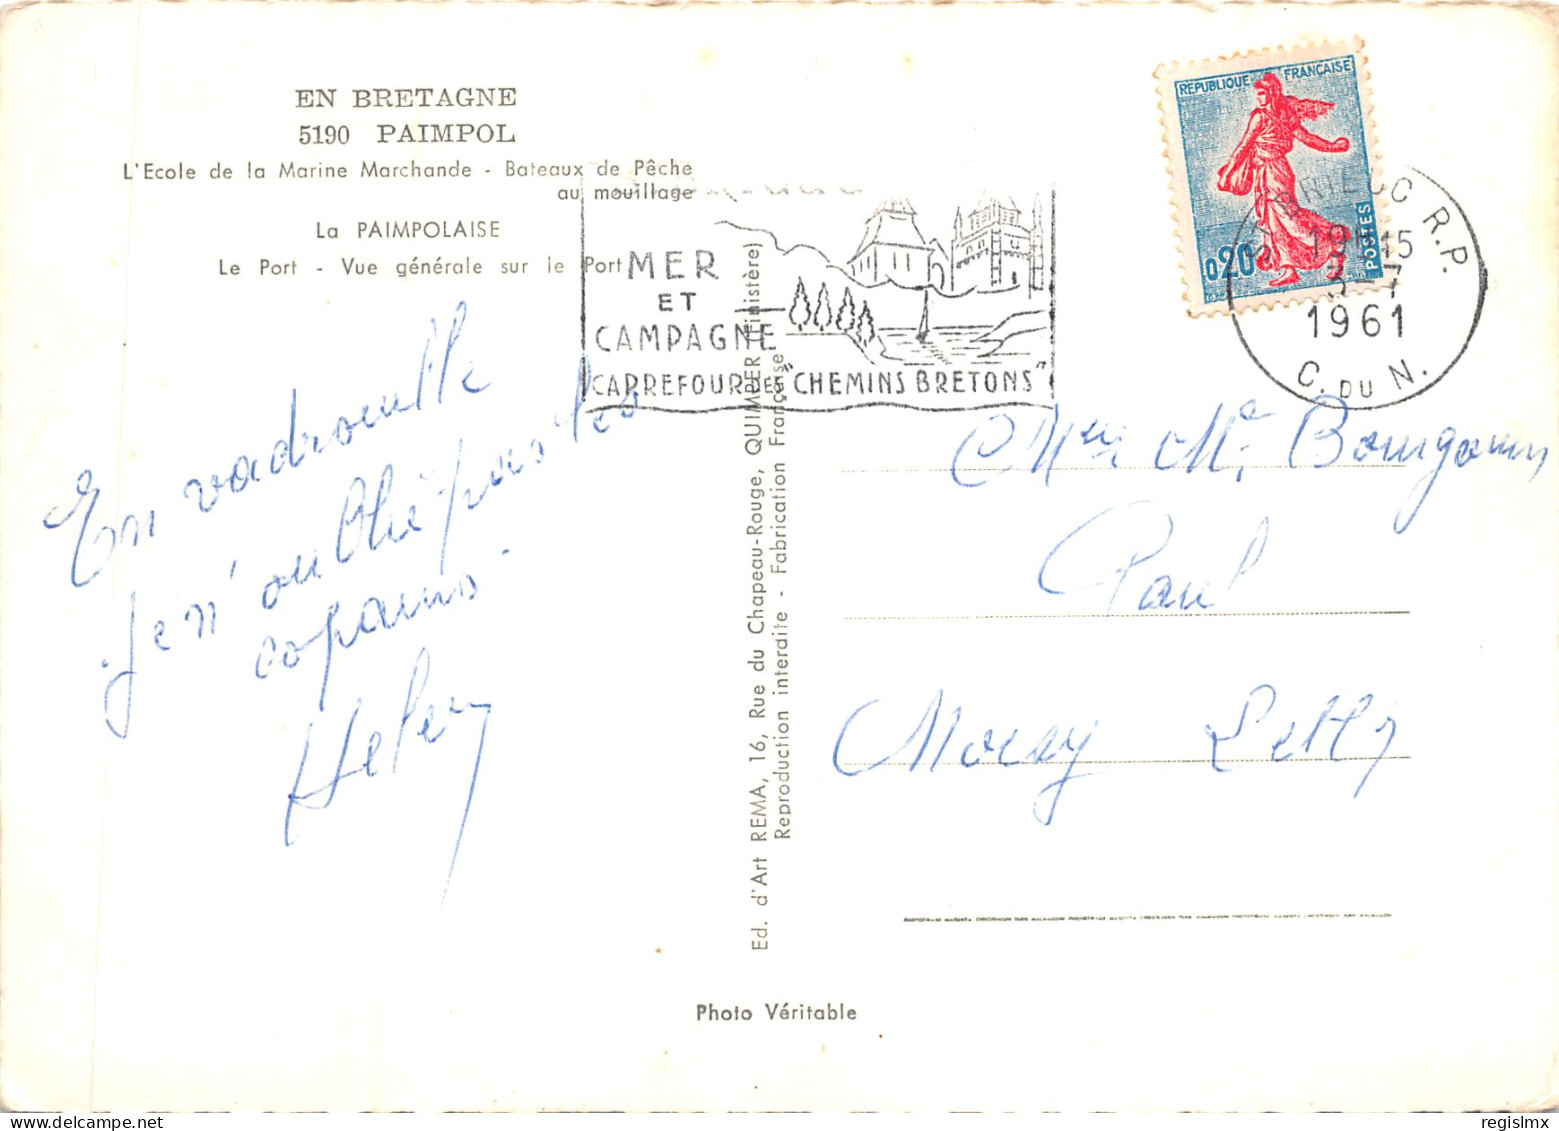 EN BRETAGNE
5190 PAIMPOL
L'Ecole de la Marine Marchande - Bateaux de Pêche
au mouillage
La PAIMPOLAISE
Le Port - Vue générale sur le Port
En vadrouille
je n'oublie pas les
copains.
MER
ET
CAMPAGNE
CARREFOUR DES "CHEMINS BRETONS"
Ed. d'Art REMA, 16, Rue du Chapeau-Rouge, QUIMPER (Finistère)
Reproduction interdite - Fabrication Française
RÉPUBLIQUE FRANÇAISE
0,20
POSTES
ST BRIEUC R.P.
19H15
3-7
1961
C. DU N.
Paul
Photo Véritable
regislmx